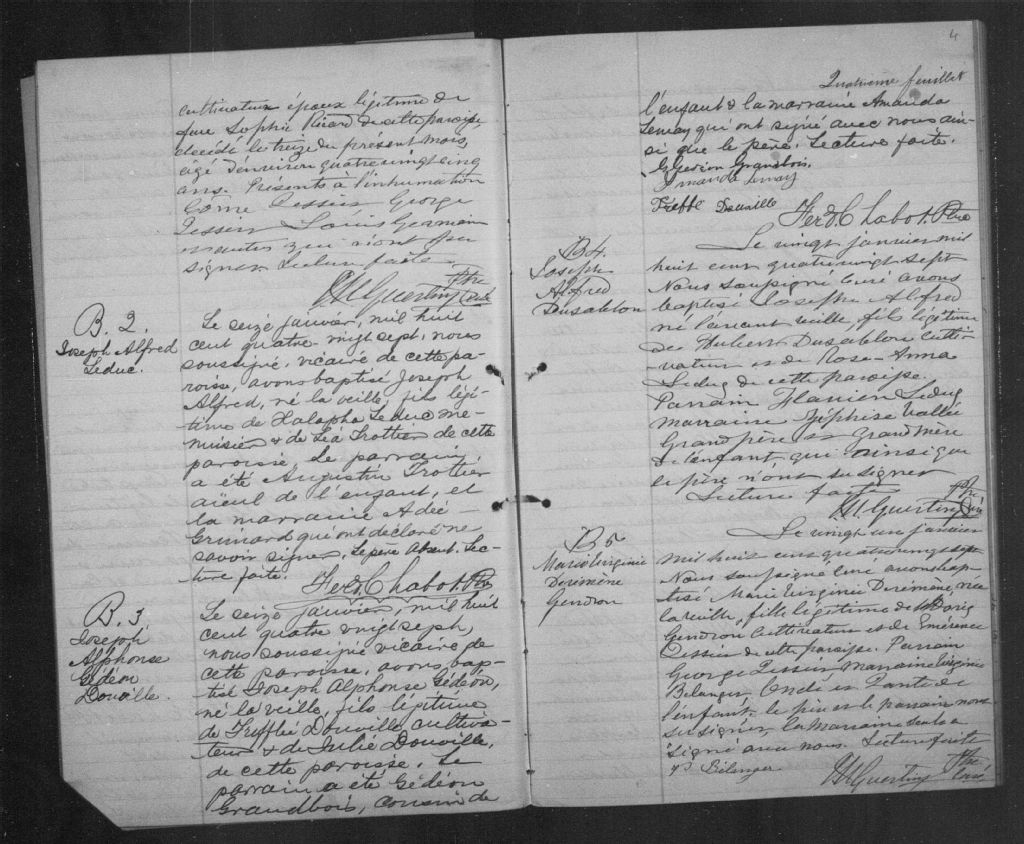 cultivateur époux légitime de
feue Sophie Ricard de cette paroisse,
décédé le treize du présent mois,
âgé d'environ quatre vingt cinq
ans. Présents à l'inhumation
Côme Tessier George
Tessier Louis Germain
qui n'ont pu
signer Lecture faite
Ptre
Guertin Curé
B. 2.
Joseph Alfred
Leduc.
Le seize janvier, mil huit
cent quatre-vingt sept, nous
soussigné, vicaire de cette pa-
roisse, avons baptisé Joseph
Alfred, né la veille, fils légi-
time de Leduc me-
nuisier & de Léa Trottier de cette
paroisse. Le parrain
a été Augustin Trottier
aïeul de l'enfant, et
la marraine
Grimard qui ont déclaré ne
savoir signer. Le père absent. Lec-
ture faite.
Ferd. Chabot. Ptre
B. 3.
Joseph
Alphonse
Gédéon
Douville.
Le seize janvier, mil huit
cent quatre vingt sept,
nous soussigné vicaire de
cette paroisse, avons bap-
tisé Joseph Alphonse Gédéon,
né la veille, fils légitime
de Trefflé Douville, cultiva-
teur & de Julie Douville,
de cette paroisse. Le
parrain a été Gédéon
Grandbois, cousin de
4
Quatrième feuillet
l'enfant & la marraine Amanda
Lemay qui ont signé avec nous ain-
si que le père. Lecture faite.
Gédéon Grandbois.
Amanda Lemay
Treffé Douville
Ferd. Chabot. Ptre
B 4.
Joseph
Alfred
Dusablon
Le vingt janvier mil
huit cent quatre vingt sept
Nous soussigné curé avons
baptisé Joseph Alfred
né l'avant veille, fils légitime
de Hubert Dusablon Culti-
vateur et de Rose-Anna
Leduc de cette paroisse.
Parrain Flavien Leduc
marraine Zéphise Vallée
Grand père et Grand mère
de l'enfant qui ainsi que
le père n'ont su signer
Lecture faite
Ptre
Guertin Curé
B 5
Marie Virginie
Dorimène
Gendron
Le vingt un janvier
mil huit cent quatre vingt sept
Nous soussigné curé avons bap-
tisé Marie Virginie Dorimène née
la veille, fille légitime de
Gendron Cultivateur et de Emérence
Tessier de cette paroisse. Parrain
George Tessier marraine Virginie
Belanger, Oncle et Tante de
l'enfant. le père et le parrain n'ont
su signer, la marraine seule a
signé avec nous. Lecture faite
V Bélanger
Ptre
Guertin Curé